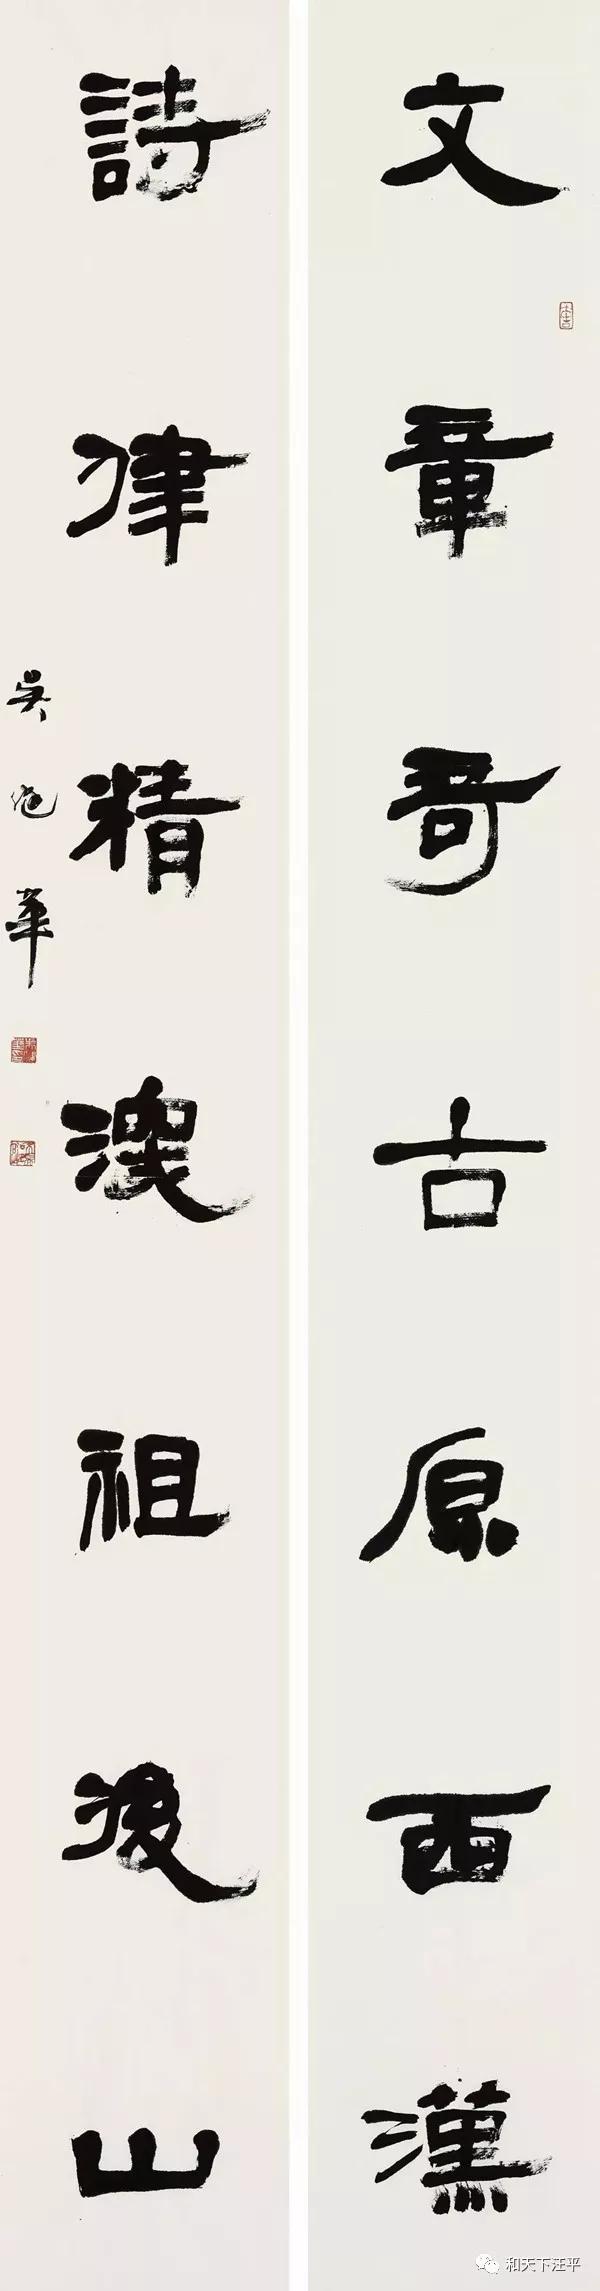 文章奇古原西漢
詩律精深祖後山
吴 華
大吉
和天下汪平